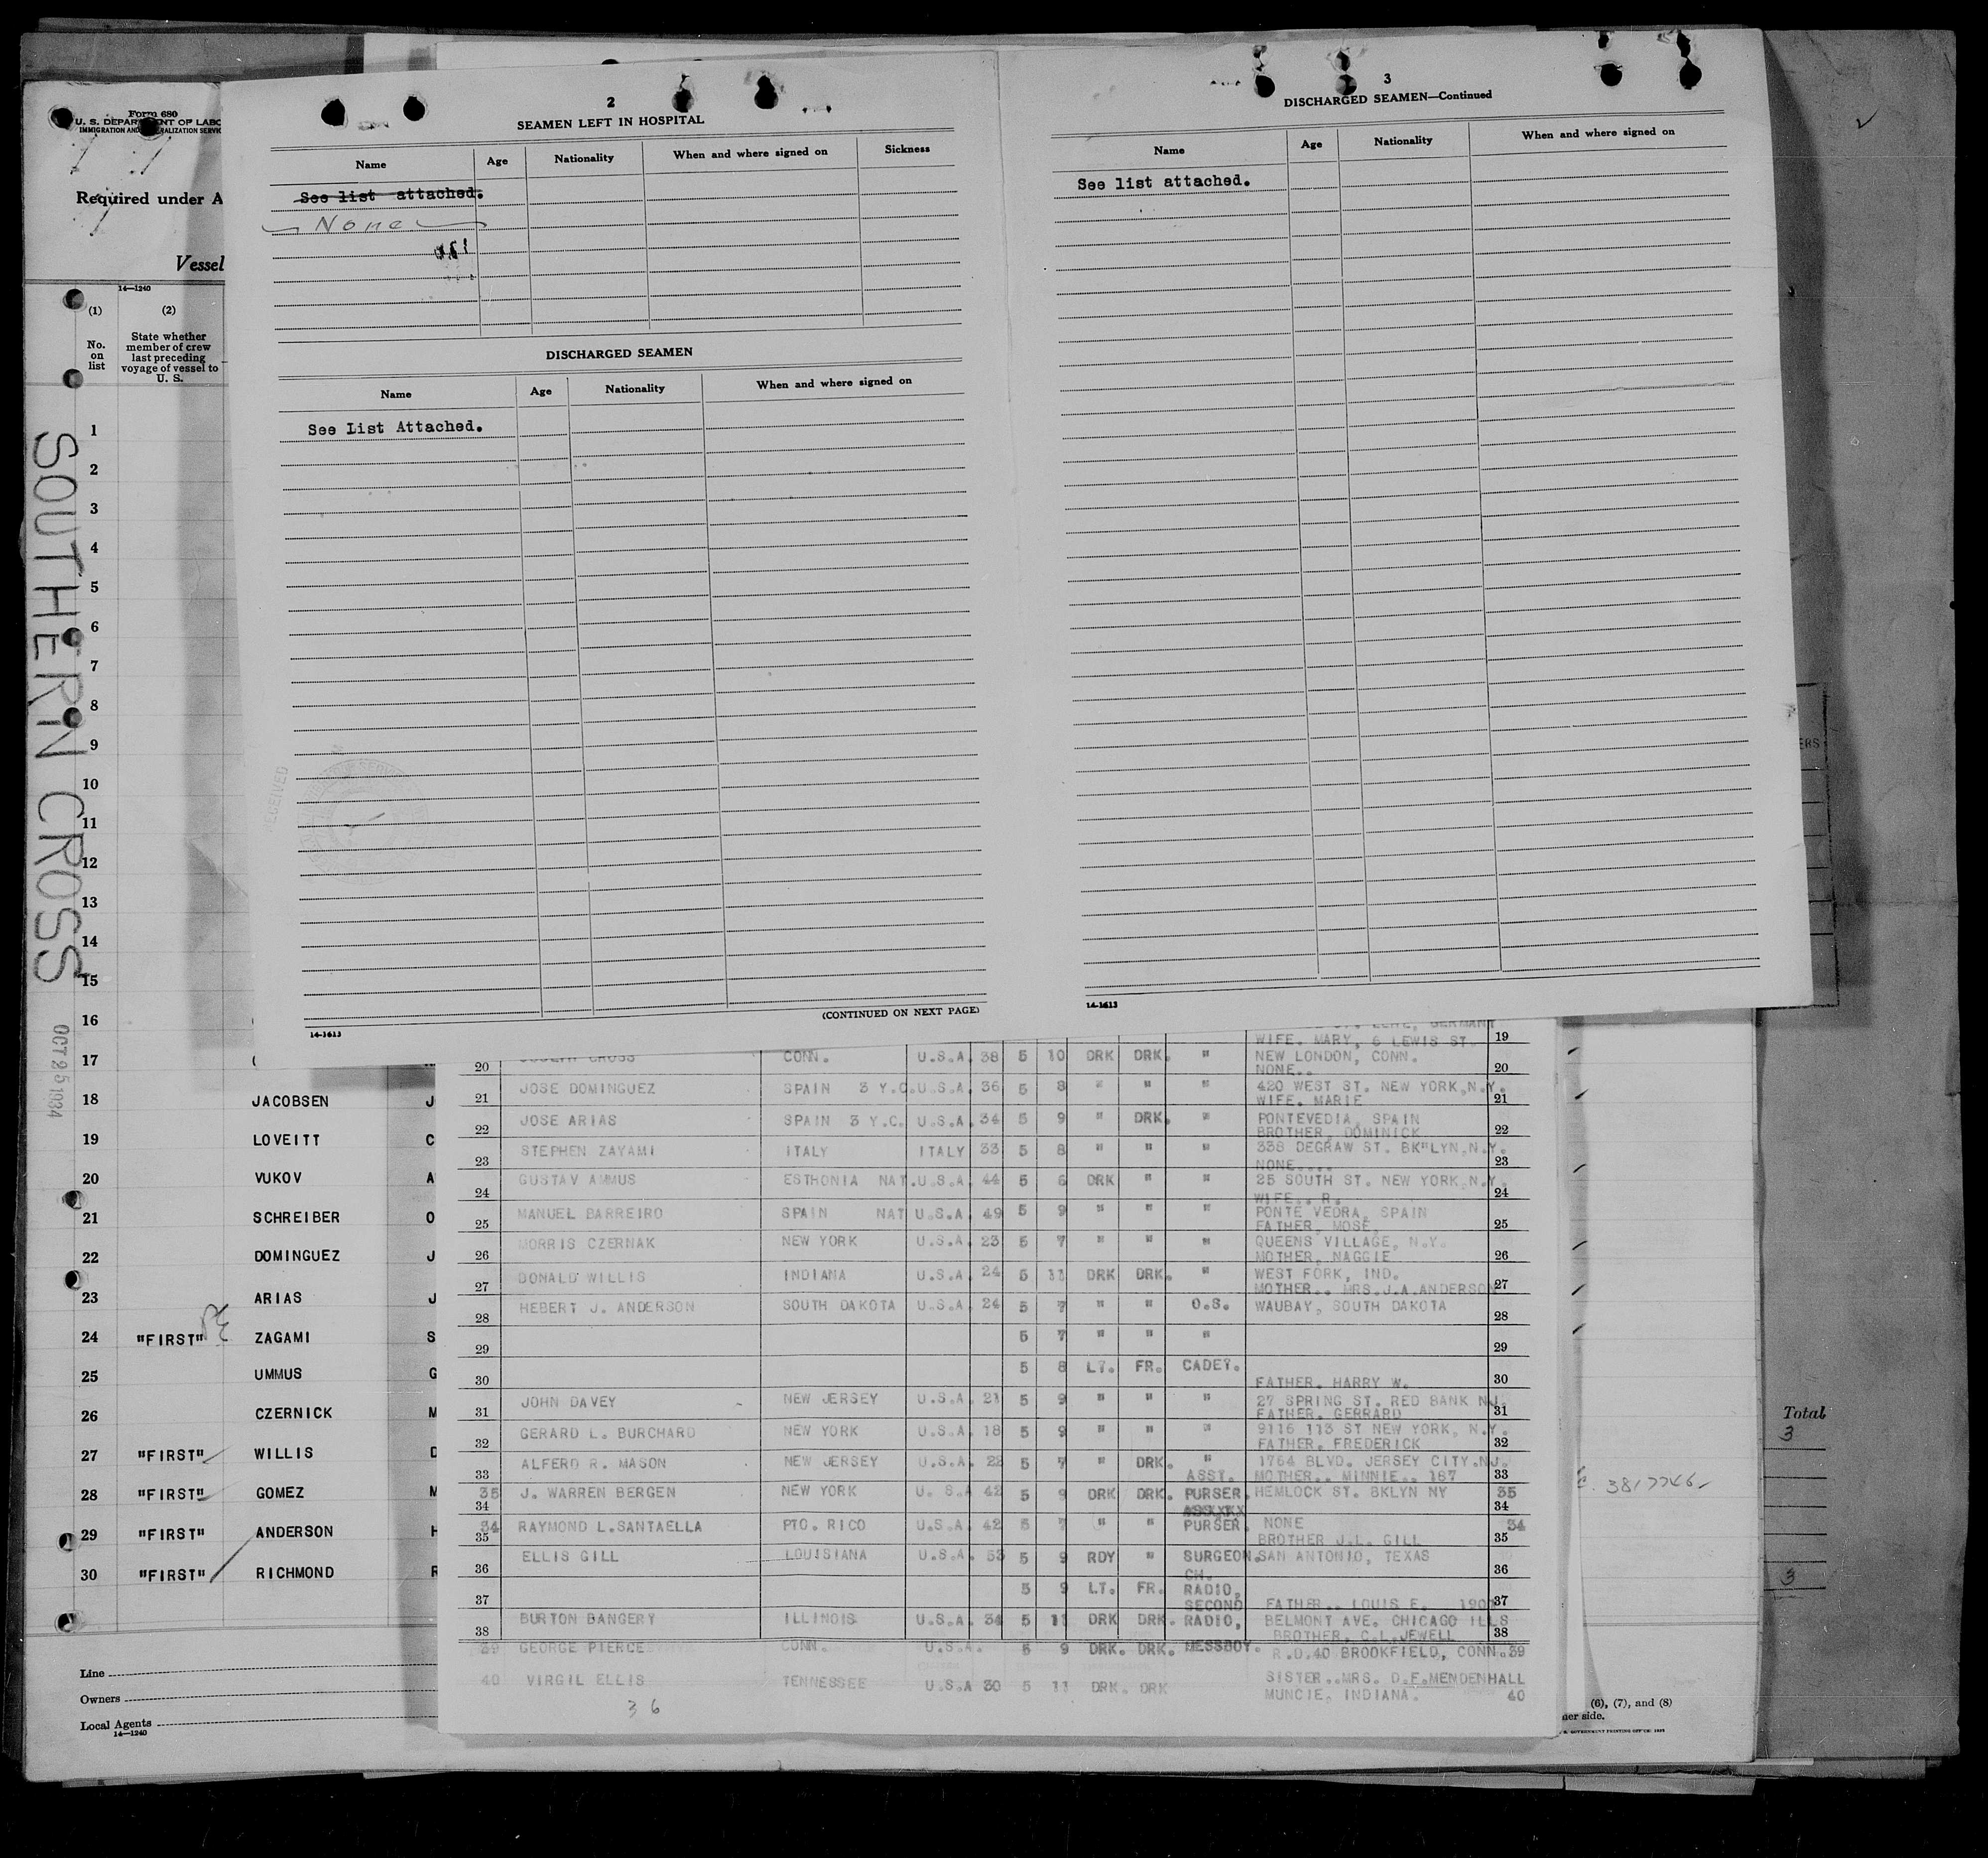 Form 680
U. S. DEPARTMENT OF LABO
IMMIGRATION AND NATURALIZATION SERVIC
Required under A
Vessel
14—1240
(1) (2)
No. on list
State whether member of crew last preceding voyage of vessel to U. S.
SOUTHERN CROSS
OCT 25 1934
1
2
3
4
5
6
7
8
9
10
11
12
13
14
15
16
17
18 JACOBSEN J
19 LOVEITT C
20 VUKOV A
21 SCHREIBER O
22 DOMINGUEZ J
23 ARIAS J
24 "FIRST" ZAGAMI S
25 UMMUS G
26 CZERNICK M
27 "FIRST" WILLIS D
28 "FIRST" GOMEZ M
29 "FIRST" ANDERSON H
30 "FIRST" RICHMOND R
Line
Owners
Local Agents
14—1240
2
SEAMEN LEFT IN HOSPITAL
Name Age Nationality When and where signed on Sickness
See list attached.
None
DISCHARGED SEAMEN
Name Age Nationality When and where signed on
See List Attached.
RECEIVED
(CONTINUED ON NEXT PAGE)
14-1613
3
DISCHARGED SEAMEN—Continued
Name Age Nationality When and where signed on
See list attached.
14-1613
WIFE. MARY, 6 LEWIS ST. 19
20 JOSEPH CROSS CONN. U.S.A. 38 5 10 DRK DRK. " NEW LONDON, CONN.
NONE.. 20
21 JOSE DOMINGUEZ SPAIN 3 Y.C. U.S.A. 36 5 8 " " " 420 WEST ST. NEW YORK,N.Y.
WIFE. MARIE 21
22 JOSE ARIAS SPAIN 3 Y.C. U.S.A. 34 5 9 " DRK. " PONTEVEDIA, SPAIN
BROTHER, DOMINICK 22
23 STEPHEN ZAYAMI ITALY ITALY 33 5 8 " " " 338 DEGRAW ST. BK"LYN,N.Y.
NONE.... 23
24 GUSTAV AMMUS ESTHONIA NAT. U.S.A. 44 5 6 DRK " " 25 SOUTH ST. NEW YORK,N.Y.
WIFE.. R. 24
25 MANUEL BARREIRO SPAIN NAT U.S.A. 49 5 9 " " " PONTE VEDRA, SPAIN
FATHER, MOSE, 25
26 MORRIS CZERNAK NEW YORK U.S.A. 23 5 7 " " " QUEENS VILLAGE, N.Y.
MOTHER, NAGGIE 26
27 DONALD WILLIS INDIANA U.S.A. 24 5 11 DRK DRK. " WEST FORK, IND.
MOTHER.. MRS.J.A.ANDERSON 27
28 HEBERT J. ANDERSON SOUTH DAKOTA U.S.A. 24 5 7 " " O.S. WAUBAY, SOUTH DAKOTA 28
29 5 7 " " " 29
30 5 8 LT. FR. CADET. 30
FATHER. HARRY W.
31 JOHN DAVEY NEW JERSEY U.S.A. 21 5 9 " " " 27 SPRING ST. RED BANK NJ. 31
FATHER. GERRARD
32 GERARD L. BURCHARD NEW YORK U.S.A. 18 5 9 " " " 9116 113 ST NEW YORK, N.Y.
FATHER. FREDERICK 32
33 ALFERD R. MASON NEW JERSEY U.S.A. 22 5 7 " DRK. " 1764 BLVD. JERSEY CITY.NJ.
ASST. MOTHER.. MINNIE.. 187 33
35 J. WARREN BERGEN NEW YORK U. S.A 42 5 9 DRK DRK. PURSER. HEMLOCK ST. BKLYN NY 35
34 34
34 RAYMOND L.SANTAELLA PTO. RICO U.S.A. 42 5 7 " " PURSER. NONE 34
35 BROTHER J.L. GILL 35
36 ELLIS GILL LOUISIANA U.S.A. 53 5 9 RDY " SURGEON. SAN ANTONIO, TEXAS 36
CH.
37 5 9 LT. FR. RADIO. 37
SECOND FATHER.. LOUIS E. 1901
38 BURTON BANGERY ILLINOIS U.S.A. 34 5 11 DRK DRK. RADIO, BELMONT AVE. CHICAGO ILLS
BROTHER, C.L.JEWELL 38
39 GEORGE PIERCE CONN. U.S.A. 5 9 DRK. DRK. MESSBOY. R.D.40 BROOKFIELD, CONN. 39
SISTER..MRS. D.F.MENDENHALL
40 VIRGIL ELLIS TENNESSEE U.S.A 30 5 11 DRK. DRK MUNCIE, INDIANA. 40
36
ERS
Total
3
3
(6), (7), and (8)
her side.